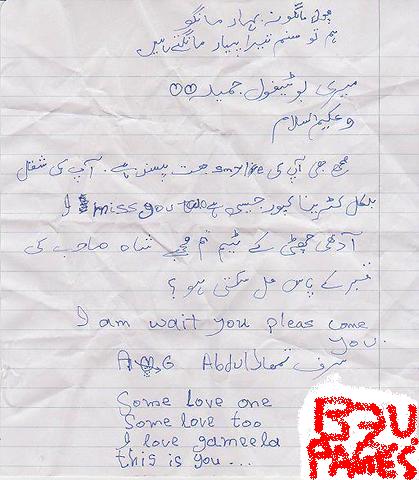 پھول مانگو نہ بہار مانگو
ہم تو صنم تیرا پیار مانگتے ہیں
میری بوٹیفول جمیلہ
وعلیکم اسلام
مجھے جی آپ کی smylire بہت پسند ہے. آپ کی شقل
بلکل کٹرینا کپور جیسی ہے I miss you too
آدھی چھٹی کے ٹیم تم مجھے شاہ صاحب کی
قبر کے پاس مل سکتی ہو؟
I am wait you pleas come
you.
A G Abdul صرف تمھارا
Some love one
Some love too
I love gameela
this is you...
BZU
PAGES